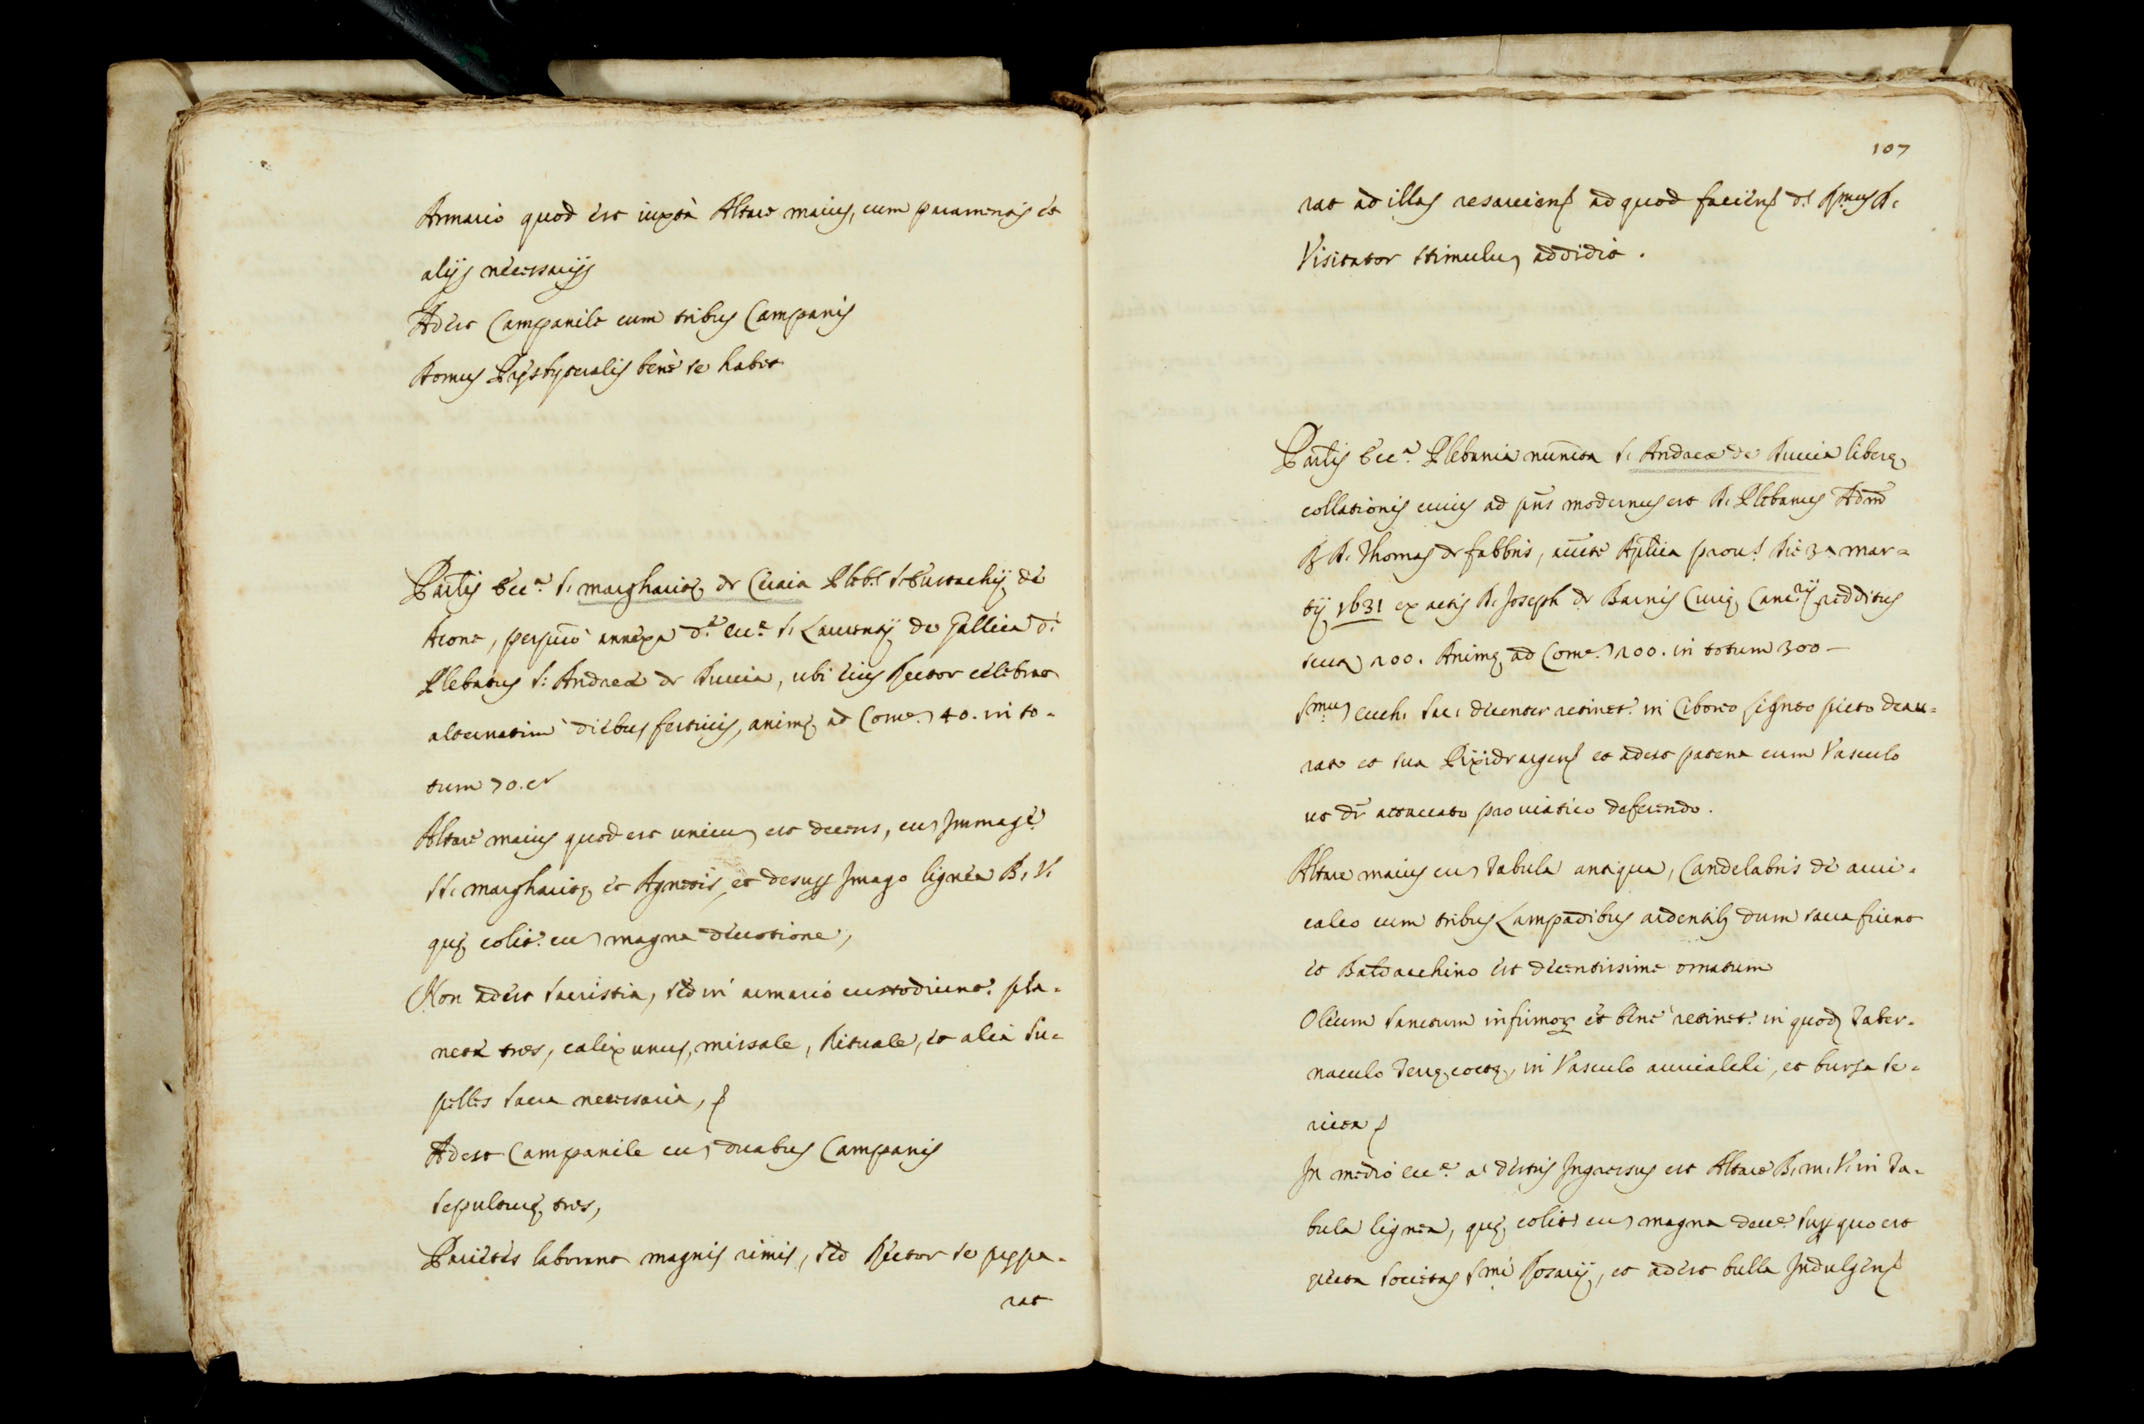 Armario quod est iuxta Altare maius, cum paramentis et
alijs necessarijs
Adest Campanile cum tribus Campanis
Domus Presbyteralis bene se habet
Par.lis Ecc.a S. Margharitę de Ciraia Pleb.s S. Eustachij de
Acone, annexa d.ę ecc.ę S. Laurentij de Gallica d.i
Plebatus S. Andreæ de Duccia, ubi eius Rector celebrat
alternatim diebus festivis, animę ad Com.e 40. in to-
tum 70. c.a
Altare maius quod est unicu est decens, cu Immagē
St. Margharitę et Agnetis, et desup Imago lignea B. V.
quę colit. cu magna devotione,
Non adest sacristia, sed in armario custodiunt. pla-
netæ tres, calix unus, missale, Rituale, et alia su-
pellex sacra necessaria,
Adest Campanile cu duabus Campanis
sepulturę tres,
Parietes laborant magnis rimis, sed Rector se prępa-
rat
107
rat ad illas resarciend ad quod faciend d. R.mus D.
Visitator stimulu addidit.
Par.lis Ecc.a Plebania nuncta S. Andreæ de Duccia liberę
collationis cuius ad pn̄s modernus est D. Plebanus Adm̄
R D. Thomas de fabbris, aucte Aplica prou. Die 3a mar-
tij 1631 ex actis D. Joseph de Barnis Curię Canc.rij redditus
scuta 200. Animę ad Com.e 200. in totum 300 —
S.mu euch. sac. decenter retinet. in Ciborio ligneo picto deau-
rato et sua Pixide argent et adest patena cum Vasculo
ut dr̄ attaccato pro viatico deferendo.
Altare maius cu Tabula antiqua, Candelabris de auri-
calco cum tribus Lampadibus ardentib dum sacra fiunt
et Baldacchino est decentissime ornatum
Oleum sanctum infirmoꝝ et bene retinet. in quod Taber-
naculo Terrę coctę, in Vasculo auricalchi, et bursa se-
ricea
In medio ecc.ę a dextris Ingressus est Altare B. M. V. in Ta-
bula lignea, quę colit. cu magna deuo.e sup quo est
erecta societas S.mi Rosarij, et adest bulla Indulgent